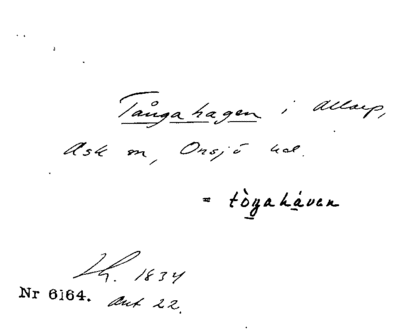 Tångahagen i Allarp,
Ask sn, Onsjö hd.
= tòŋahávan
Lh. 1834
Nr 6164. Ant 22.